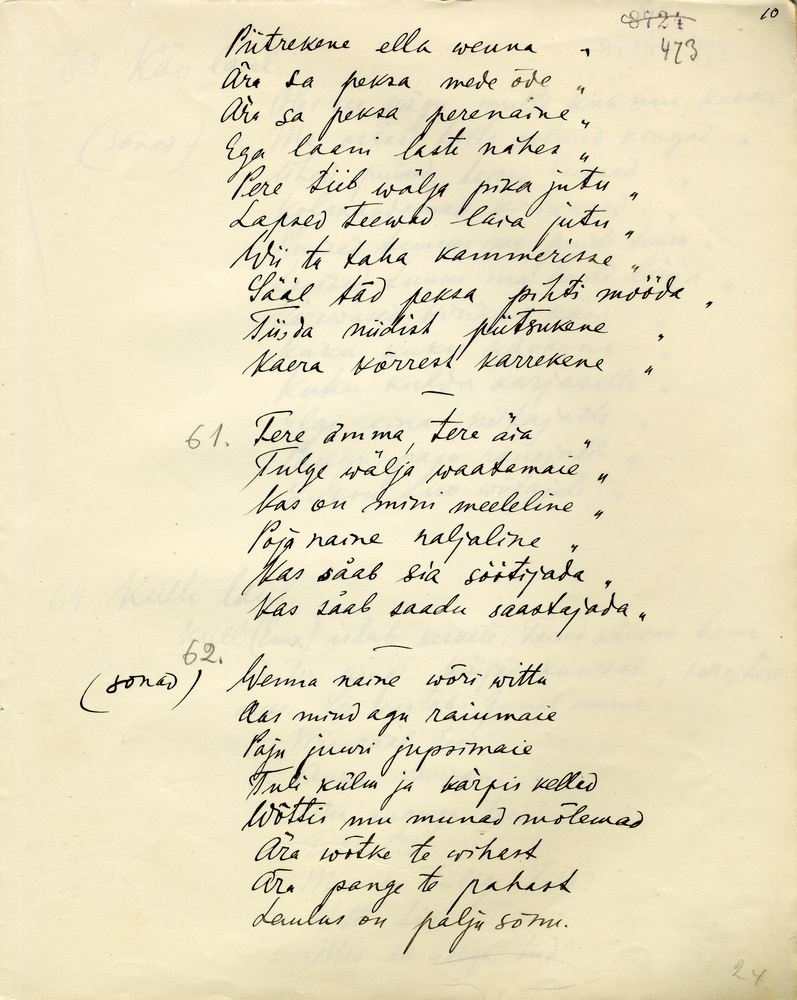 10
8724
473
Piitrekene ella wenna „
Ära sa peksa mede õde „
Ära sa peksa perenaine „
Ega laani laste nähes „
Pere tiib wälja pika jutu „
Lapsed teewad laia jutu „
Wii ta taha kammerisse „
Sääl tad peksa pihti mööda „
Tiida niidist piitsukene „
Kaera kõrrest karrekene „
61. Tere ämma, tere äia „
Tulge wälja waatamaie „
Kas on mini meeleline „
Poja naine naljaline „
Kas sääb sia söötijada „
Kas sääb saadu saastajada „
62.
(sõnad) Wenna naine wõri wittu
Aas mind agu raiumaie
Paju juuri jupsimaie
Tuli külm ja kärpis kelled
Wõttis mu munad mõlemad
Ära wõtke te wihast
Ära pange te pahast
Laulus on palju sõnu.
24